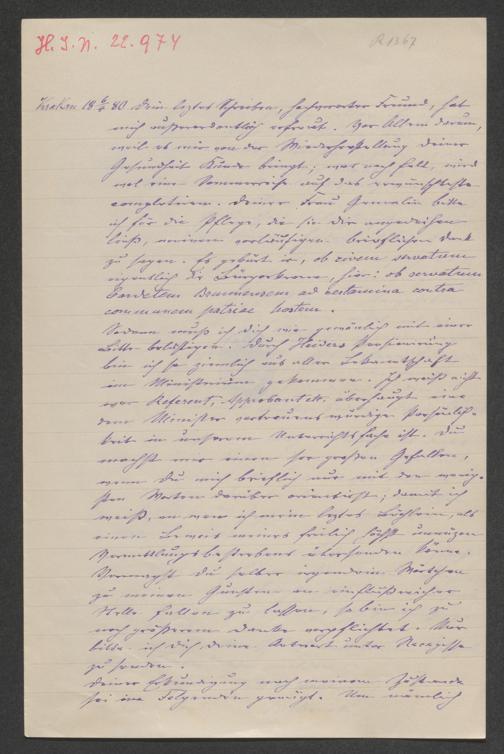 H. I. N. 22.974
R 1367
Krakau 18 6/5 80 Dein leztes Schreiben, hochgeehrter Freund, hat
mich außerordentlich erfreut. Vor Allem darum,
weil es mir von der Wiederherstellung deiner
Gesundheit Kunde bringt; was noch fehlt, wird
wol eine Sommerreise auf das erwünschteste
completiren. Deiner Frau Gemalin bitte
ich für die Pflege, die sie dir angedeihen
läßt, meinen vorläufigen brieflichen Dank
zu sagen. Es gebürt ir, ob civem servatum
eigentlich die Bürgerkrone, hier: ob servatum
communem patriae hostem.
Sodann muß ich dich wie gewönlich mit einer
Bitte belästigen. Durch Heiders Pensionirung
bin ich so ziemlich aus aller Bekanntschaft
im Ministerium gekommen. Ich weiß nicht
wer Referent, überhaupt eine
dem Minister vertrauenswürdige Persönlich-
keit in unserem Unterrichtsfache ist. Du
machst mir einen ser großen Gefallen,
wenn du mich brieflich nur mit den wenig-
sten Worten darüber orientirst; damit ich
weiß, an wen ich mein leztes Büchlein, als
einen Beweis meines freilich höchst unnüzen
Vermittlungsbestrebens übersenden könne.
Vermagst du selber irgendein Wörtchen
zu meinen Gunsten an einflußreicher
Stelle fallen zu lassen, so bin ich zu
noch größerem Danke verpflichtet. Nur
bitte ich dich, deine Antwort unter Recepisse
zu senden.
Deiner Erkundigung nach meinem Zustande
sei im Folgenden genügt. Um nämlich